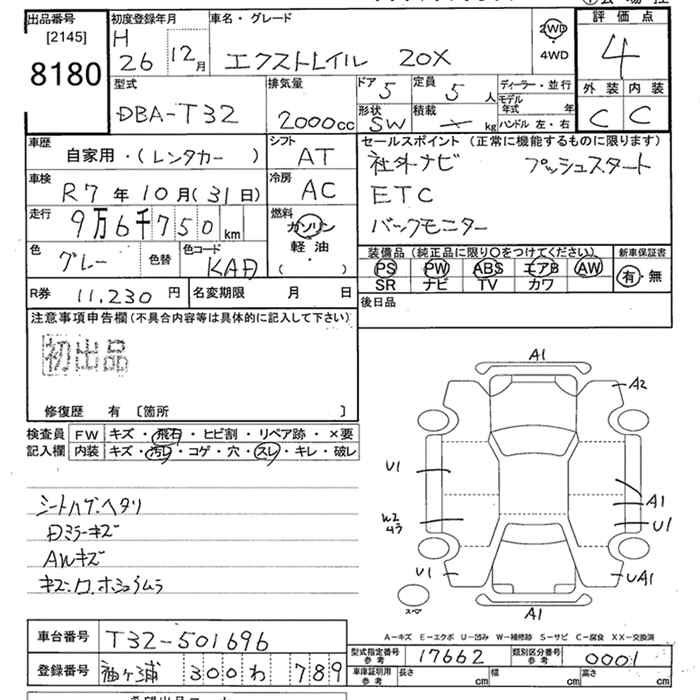 出品番号 初度登録年月 車名・グレード 2WD 評価点
[2145] H
8180 26 12月 エクストレイル 20X 4WD 4
型式 排気量 ドア 5 定員 5人 ディーラー・並行 外装 内装
モデル年式 年
DBA-T32 2000cc 形状 SW 積載 kg ハンドル 左・右 C C
車歴 シフト セールスポイント (正常に機能するものに限ります)
自家用・(レンタカー ) AT 社外ナビ プッシュスタート
車検 冷房 ETC
R7年10月(31日) AC
走行 燃料 バックモニター
9万6千750km ガソリン
軽油
( )
装備品(純正品に限り〇をつけてください) 新車保証書
色 グレー 色替 色コード KAD PS PW ABS エアB AW 有・無
SR ナビ TV カワ
R券 11,230円 名変期限 月 日 後日品
注意事項申告欄(不具合内容等は具体的に記入して下さい)
初出品
修復歴 有 [箇所 ]
検査員 FW キズ・飛石・ヒビ割・リペア跡・×要
記入欄 内装 キズ・汚レ・コゲ・穴・スレ・キレ・破レ
シートハゲ・ヘタリ
Dミラーキズ
AWキズ
A1
A2
U1
A1
U1
U1
UA1
A1
スペア
A-キズ E-エクボ U-凹み W-補修跡 S-サビ C-腐食 XX-交換済
車台番号 T32-501696
型式指定番号 参考 17662 類別区分番号 参考 0001
登録番号 袖ヶ浦 300 わ 789
車庫証明用 参考 長さ cm 幅 cm 高さ cm